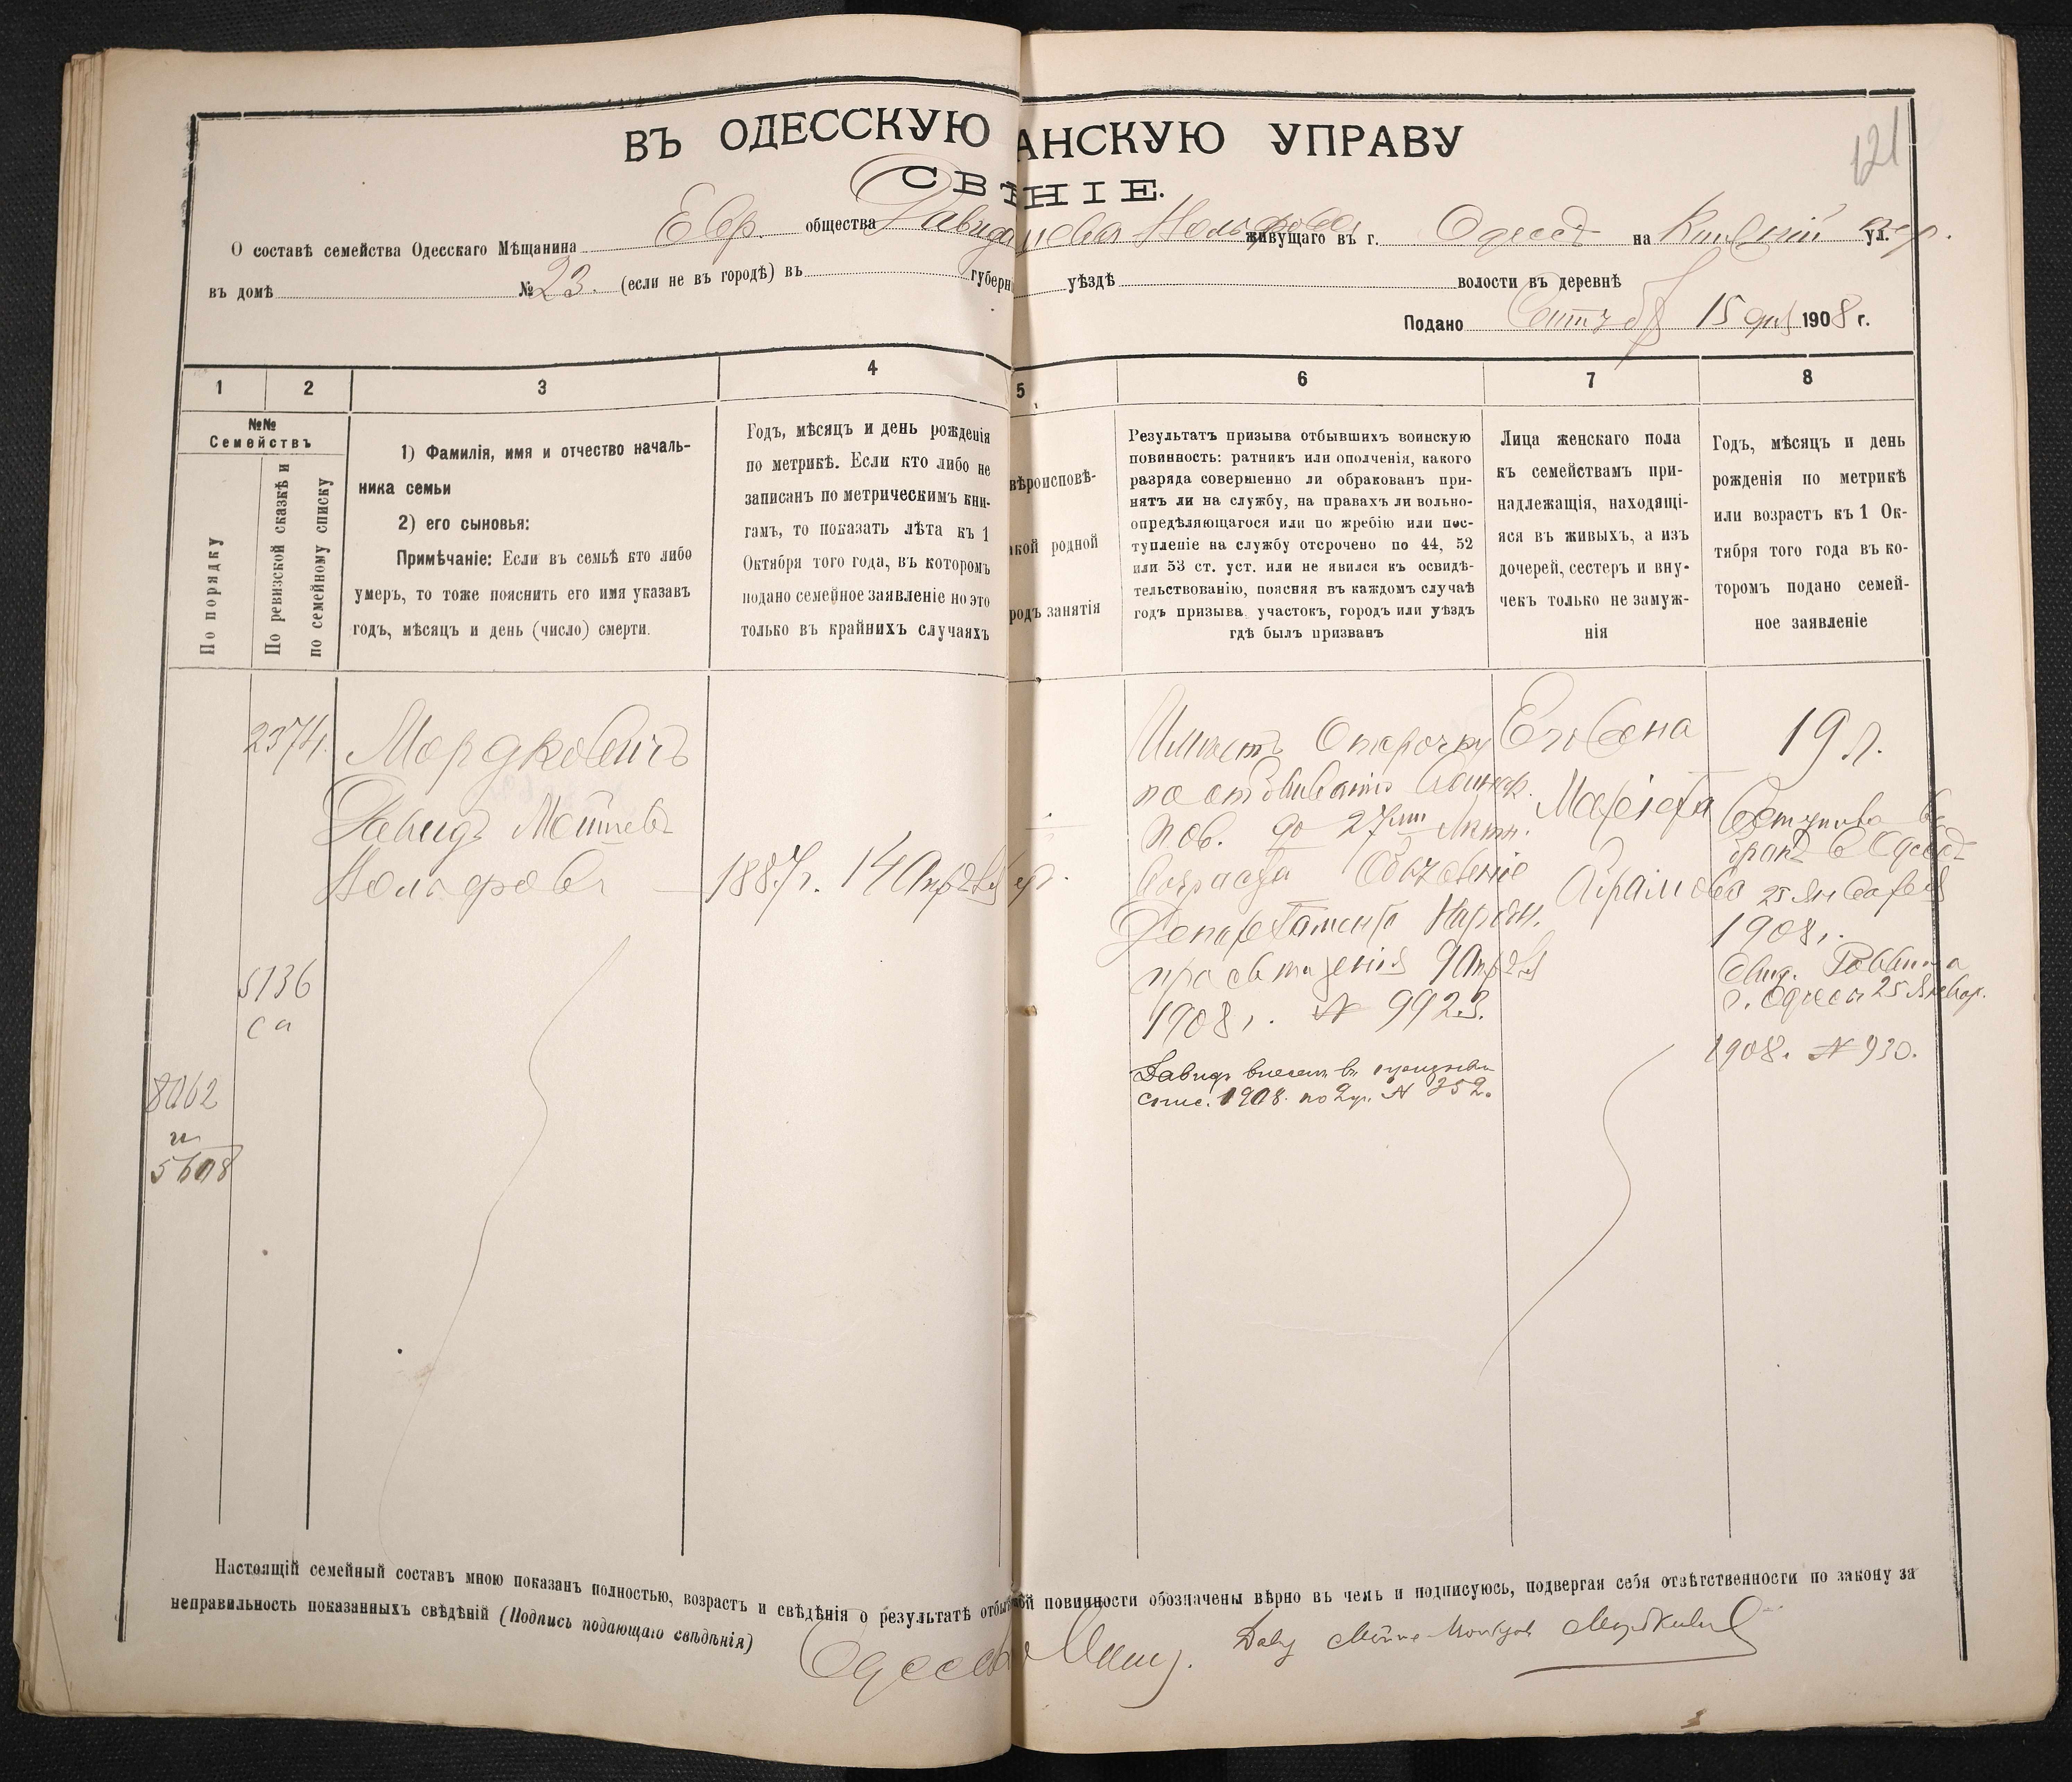 121
ВЪ ОДЕССКУЮ АНСКУЮ УПРАВУ
СВ НІЕ.
О составѣ семейства Одесскаго Мѣщанина Евр. общества Давида Нольфова живущаго въ г. Одессѣ на ул.
въ домѣ № 23. (если не въ городѣ) въ губерн уѣздѣ волости въ деревнѣ
Подано 15 дня 1908 г.
1 2 3 4 5 6 7 8
№№
Семействъ
По порядку
По ревизской сказкѣ и
по семейному списку
1) Фамилія, имя и отчество началь-
ника семьи
2) его сыновья:
Примѣчаніе: Если въ семьѣ кто либо
умеръ, то тоже пояснить его имя указавъ
годъ, мѣсяцъ и день (число) смерти.
Годъ, мѣсяцъ и день рожденія
по метрикѣ. Если кто либо не
записанъ по метрическимъ кни-
гамъ, то показать лѣта къ 1
Октября того года, въ которомъ
подано семейное заявленіе но это
только въ крайнихъ случаяхъ
вѣроисповѣ-
акой родной
родъ занятія
Результатъ призыва отбывшихъ воинскую
повинность: ратникъ или ополченія, какого
разряда совершенно ли обракованъ при-
нятъ ли на службу, на правахъ ли вольно-
опредѣляющагося или по жребію или пос-
тупленіе на службу отсрочено по 44, 52
или 53 ст. уст. или не явился къ освидѣ-
тельствованію, поясняя въ каждомъ случаѣ
годъ призыва, участокъ, городъ или уѣздъ
гдѣ былъ призванъ
Лица женскаго пола
къ семействамъ при-
надлежащія, находящі-
яся въ живыхъ, а изъ
дочерей, сестеръ и вну-
чекъ только не замуж-
нія
Годъ, мѣсяцъ и день
рожденія по метрикѣ
или возрастъ къ 1 Ок-
тября того года въ ко-
торомъ подано семей-
ное заявленіе
2374.
Мордковичъ
Давидъ
Нольфовъ
1887 г. 14 Апрѣля
5136
са
8062
и
5608
Имѣетъ Отсрочку
по отбыванію воинск.
пов. до 27 лѣтн.
возраста
Департамента Народн.
просвѣщенія 9 Апрѣля
1908 г. № 9923.
Давидъ внесенъ въ призывн.
спис. 1908. по 2 уч. № 252.
Его жена
Абрамова
19 л.
Вступила въ
бракъ въ Одессѣ
25 Января
1908 г.
Свид. Раввина
г. Одессы 25 Январ.
1908. № 930.
Настоящій семейный составъ мною показанъ полностью, возрастъ и свѣдѣнія о результатѣ отбы ой повинности обозначены вѣрно въ чемъ и подписуюсь, подвергая себя отвѣтственности по закону за
неправильность показанныхъ свѣдѣній (Подпись подающаго свѣдѣнія)
Мѣщ. Мордковичъ